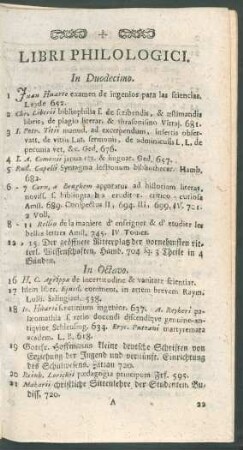 LIBRI PHILOLOGICI.
In Duodecimo.
1 Juan Huarte examen de ingenios para las sciencias.
Leyde 652.
2 Chr. Liberii bibliophilia s. de scribendis, & æstimandis
libris, de plagio literar. & thrasonismo Vltraj. 681.
3 I. Petr. Titii manud. ad excerpendum, insertis observat. de
pecunia vet. &c. Ged. 676.
4 I. A. Comenii janua rer. & linguar. Ged. 647.
5 Rud. Capelli Syntagma lectionum bibliothecar. Hamb.
682.
6 - 7 Corn. a Beughem apparatus ad historiam literar.
noviss. s. bibliographia eruditor. critico-curiosa
Amst. 689. Conspectus II. und III. 699. IV. 701.
2 Voll.
8 - 11 Rollin de la maniere d' enseigner & d' etudier les
belles lettres Amst. 745. IV Tomes.
12 - 15 Der geöffnete Ritterplatz der vornehmsten ritterl.
Wissenschaften, Hamb. 704. sq. 3 Theile in 4
Bänden.
In Octavo.
16 H. C. Agrippa de incertitudine & vanitate scientiar.
17 item liber, Ejusd. comment. in artem brevem Raym.
Lullii. Solingiaci. 538.
18 Io. Huartii scrutinium ingenior. 637. A. Reyheri
s. ratio docendi discendive
Schleusing. 634. Eryc. Puteani
L. B. 618.
19 Gottfr. Hoffmanns kleine deutsche Schriften von
Erziehung der Jugend und vernünft. Einrichtung
des Schulwesens. Zittau 720.
20 Reinh. Lorichii pædagogia principum Frf. 595.
21 christliche Sittenlehre der Studenten. Budiss. 720.
A
22